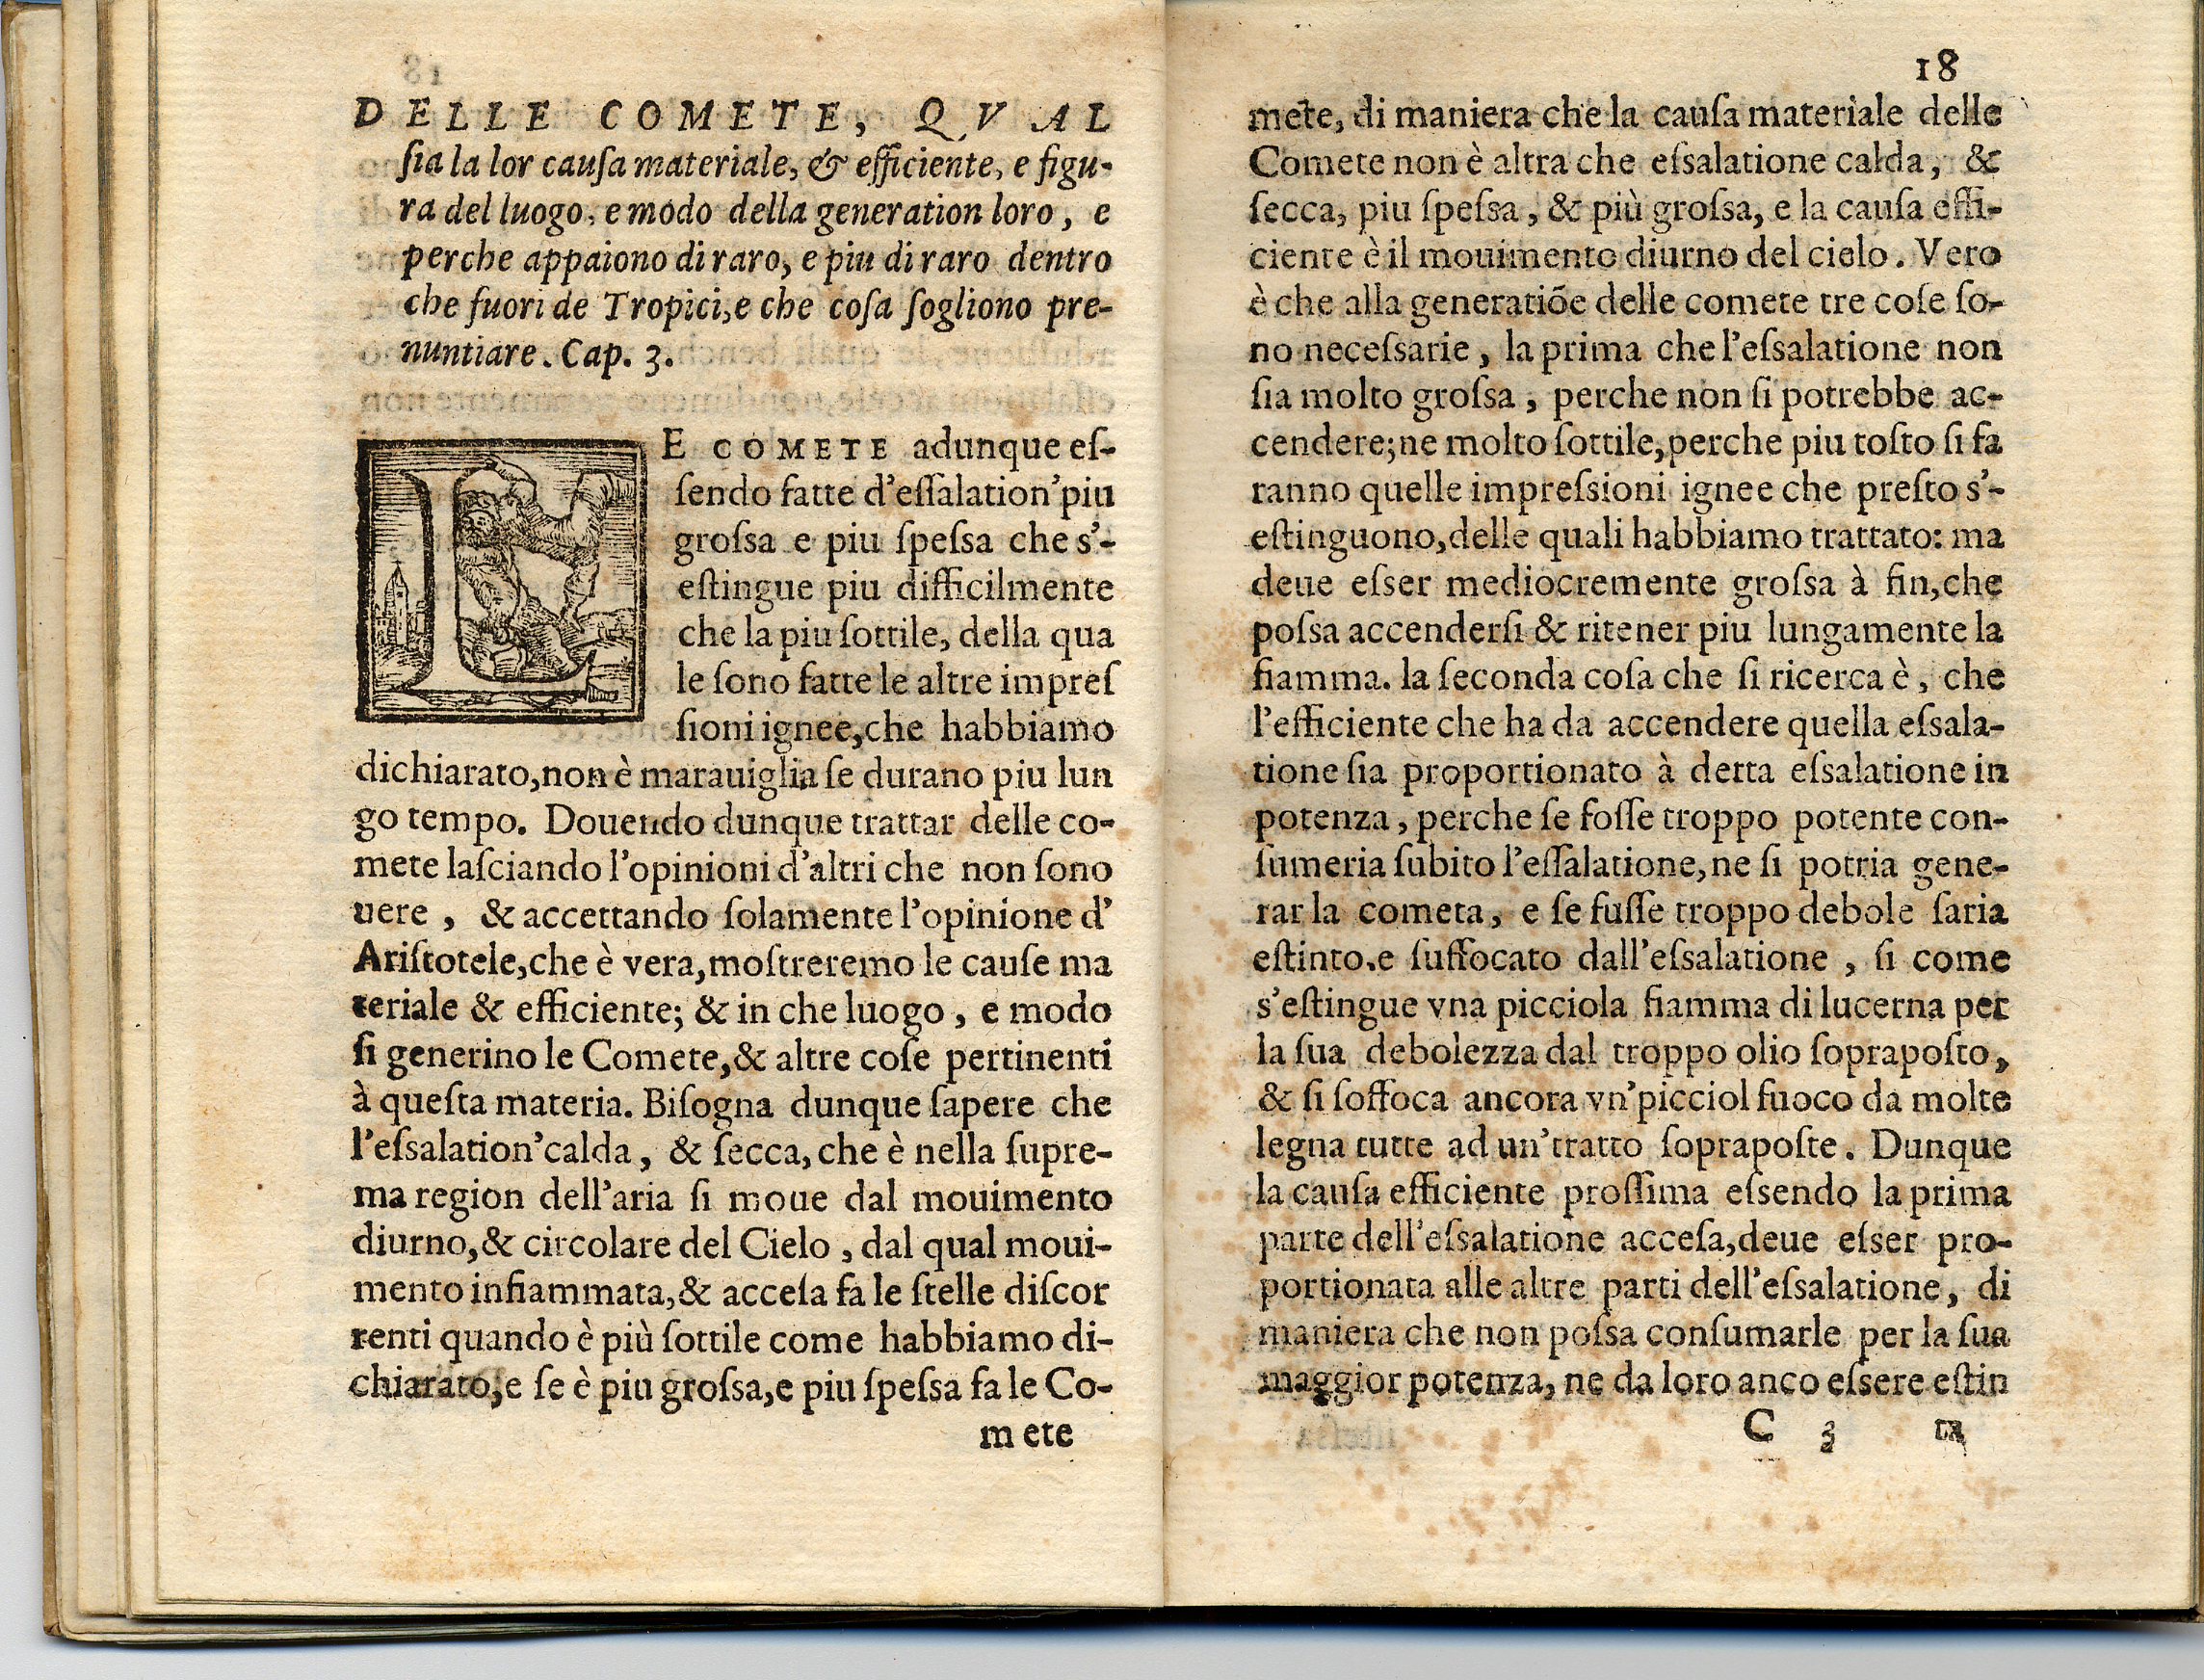 DELLE COMETE, QVAL
ſia la lor cauſa materiale, & efficiente, e figu-
ra del luogo, e modo della generation loro, e
perche appaiono di raro, e piu di raro dentro
che fuori de Tropici, e che coſa ſogliono pre-
nuntiare. Cap. 3.
LE COMETE adunque eſ-
ſendo fatte d'eſſalation'piu
groſsa e piu ſpeſsa che s'-
eſtingue piu difficilmente
che la piu ſottile, della qua
le ſono fatte le altre impreſ
ſioni ignee, che habbiamo
dichiarato, non è marauiglia ſe durano piu lun
go tempo. Douendo dunque trattar delle co-
mete laſciando l'opinioni d'altri che non ſono
uere, & accettando ſolamente l'opinione d'
Ariſtotele, che è vera, moſtreremo le cauſe ma
teriale & efficiente; & in che luogo, e modo
ſi generino le Comete, & altre coſe pertinenti
à queſta materia. Biſogna dunque ſapere che
l'eſsalation'calda, & ſecca, che è nella ſupre-
ma region dell'aria ſi moue dal mouimento
diurno, & circolare del Cielo, dal qual moui-
mento infiammata, & acceſa fa le ſtelle diſcor
renti quando è più ſottile come habbiamo di-
chiarato, e ſe è piu groſsa, e piu ſpeſsa fa le Co-
mete
18
mete, di maniera che la cauſa materiale delle
Comete non è altra che eſsalatione calda, &
ſecca, piu ſpeſsa, & più groſsa, e la cauſa effi-
ciente è il mouimento diurno del cielo. Vero
è che alla generatiõe delle comete tre coſe ſo-
no neceſsarie, la prima che l'eſsalatione non
ſia molto groſsa, perche non ſi potrebbe ac-
cendere; ne molto ſottile, perche piu toſto ſi fa
ranno quelle impreſsioni ignee che preſto s'-
eſtinguono, delle quali habbiamo trattato: ma
deue eſser mediocremente groſsa à fin, che
poſsa accenderſi & ritener piu lungamente la
fiamma. la ſeconda coſa che ſi ricerca è, che
l'efficiente che ha da accendere quella eſsala-
tione ſia proportionato à detta eſsalatione in
potenza, perche ſe foſſe troppo potente con-
ſumeria ſubito l'eſſalatione, ne ſi potria gene-
rar la cometa, e ſe fuſſe troppo debole ſaria
eſtinto, e ſuffocato dall'eſsalatione, ſi come
s'eſtingue vna picciola fiamma di lucerna per
la ſua debolezza dal troppo olio ſoprapoſto,
& ſi ſoffoca ancora vn'picciol fuoco da molte
legna tutte ad un'tratto ſoprapoſte. Dunque
la cauſa efficiente proſſima eſsendo la prima
parte dell'eſsalatione acceſa, deue eſser pro-
portionata alle altre parti dell'eſsalatione, di
maniera che non poſsa conſumarle per la ſua
maggior potenza, ne da loro anco eſsere eſtin
C 3 ta